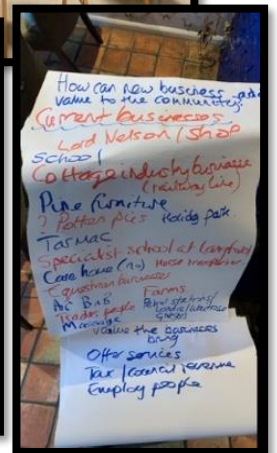 How can new business add
value to the community?
Current businesses
Lord Nelson / shop
School
Cottage industry business
(railway line)
Pine furniture
? Potter pies Holiday park
Tarmac
Specialist school at
Care home Horse
Equestrian businesses
Air BnB Farms
Trades people Petrol stations/
value the business
bring
Offer services
Tax / council revenue
Employ people